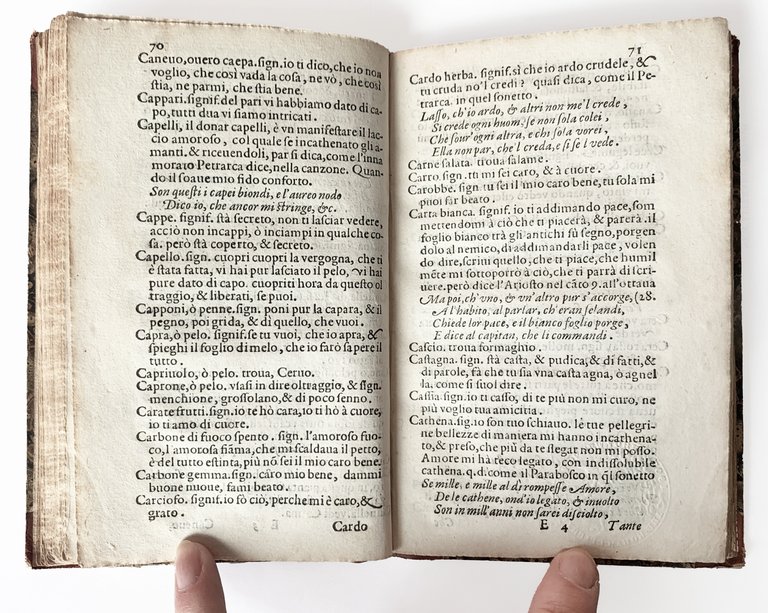 70
Caneuo, ouero caepa. sign. io ti dico, che io non
voglio, che così vada la cosa, ne vò, che così
stia, ne parmi, che stia bene.
Cappari. signif. del pari vi habbiamo dato di ca-
po, tutti dua vi siamo intricati.
Capelli, il donar capelli, è vn manifestare il lac-
cio amoroso, col quale se incathenato gli a-
manti. & riceuendoli, par si dica, come l'inna
morato Petrarca dice, nella canzone. Quan-
do il soaue mio fido conforto.
Son questi i capei biondi, e l'aureo nodo
Dico io, che ancor mi stringe, &c.
Cappe. signif. stà secreto, non ti lasciar vedere,
acciò non incappi, ò inciampi in qualche co-
sa. però stà coperto, & secreto.
Capello. sign. cuopri cuopri la vergogna, che ti
è stata fatta, vi hai pur lasciato il pelo, vi hai
pure dato di capo. cuopriti hora da questo ol
traggio, & liberati, se puoi.
Capponi, ò penne. sign. poni pur la capara, & il
pegno, poi grida, & di quello, che vuoi.
Capra, ò pelo. signif. se tu vuoi, che io apra, &
spieghi il foglio di melo, che io farò sapere il
tutto.
Capriuolo, ò pelo. troua, Ceruo.
Caprone, ò pelo. vsasi in dire oltraggio, & sign.
menchione, grossolano, & di poco senno.
Carate frutti. sign. io te hò cara, io ti hò à cuore,
io ti amo di cuore.
Carbone di fuoco spento. sign. l'amoroso fuo-
co, l'amorosa fiãma, che mi scaldaua il petto,
è del tutto estinta, più nõ sei il mio caro bene.
Carbone gemma. sign. caro mio bene, dammi
buone nuoue, fami beato.
Carciofo. signif. io sò ciò, perche mi è caro, &
grato.
Cardo
71
Cardo herba. signif. sì che io ardo crudele, &
tu cruda no'l credi? quasi dica, come il Pe-
trarca. in quel sonetto.
Lasso, ch'io ardo, & altri non me'l crede,
Si crede ogni huom, se non sola colei,
Che sour'ogni altra, e chi sola vorei,
Ella non par, che'l creda, e si se'l vede.
Carne salata. troua salame.
Carro. sign. tu mi sei caro, & à cuore.
Carobbe. sign. tu sei il mio caro bene, tu sola mi
puoi far beato.
Carta bianca. signif. io ti addimando pace, som
mettendomi à ciò che ti piacerà, & parerà. il
foglio bianco trà gli antichi fù segno, porgen
dolo al nemico, di addimandarli pace, volen
do dire, scriui quello, che ti piace, che humil
mẽte mi sottoporrò à ciò, che ti parrà di scri-
uere. però dice l'Ariosto nel cãto 9. all'ottaua
Ma poi, ch'vno, & vn'altro pur s'accorge, (28.
A l'habito, al parlar, ch'eran felandi,
Chiede lor pace, e il bianco foglio porge,
E dice al capitan, che li commandi.
Cascio. troua formaghio.
Castagna. sign. stà casta, & pudica, & di fatti, &
di parole, fà che tu sia vna casta agna, ò agnel
la. come si suol dire.
Cassia. sign. io ti casso, di te più non mi curo, ne
più voglio tua amicitia.
Cathena. sig. io son tuo schiauo. le tue pellegri-
ne bellezze di maniera mi hanno incathena-
to, & preso, che più da te slegar non mi posso.
Amore mi hà teco legato, con indissolubile
cathẽna. q.d. come il Parabosco in q̃l sonetto
Se mille, e mille al dì rompesse Amore,
De le cathene, ond'io legato, & inuolto
Son in mill'anni non sarei disciolto,
E 4 Tante